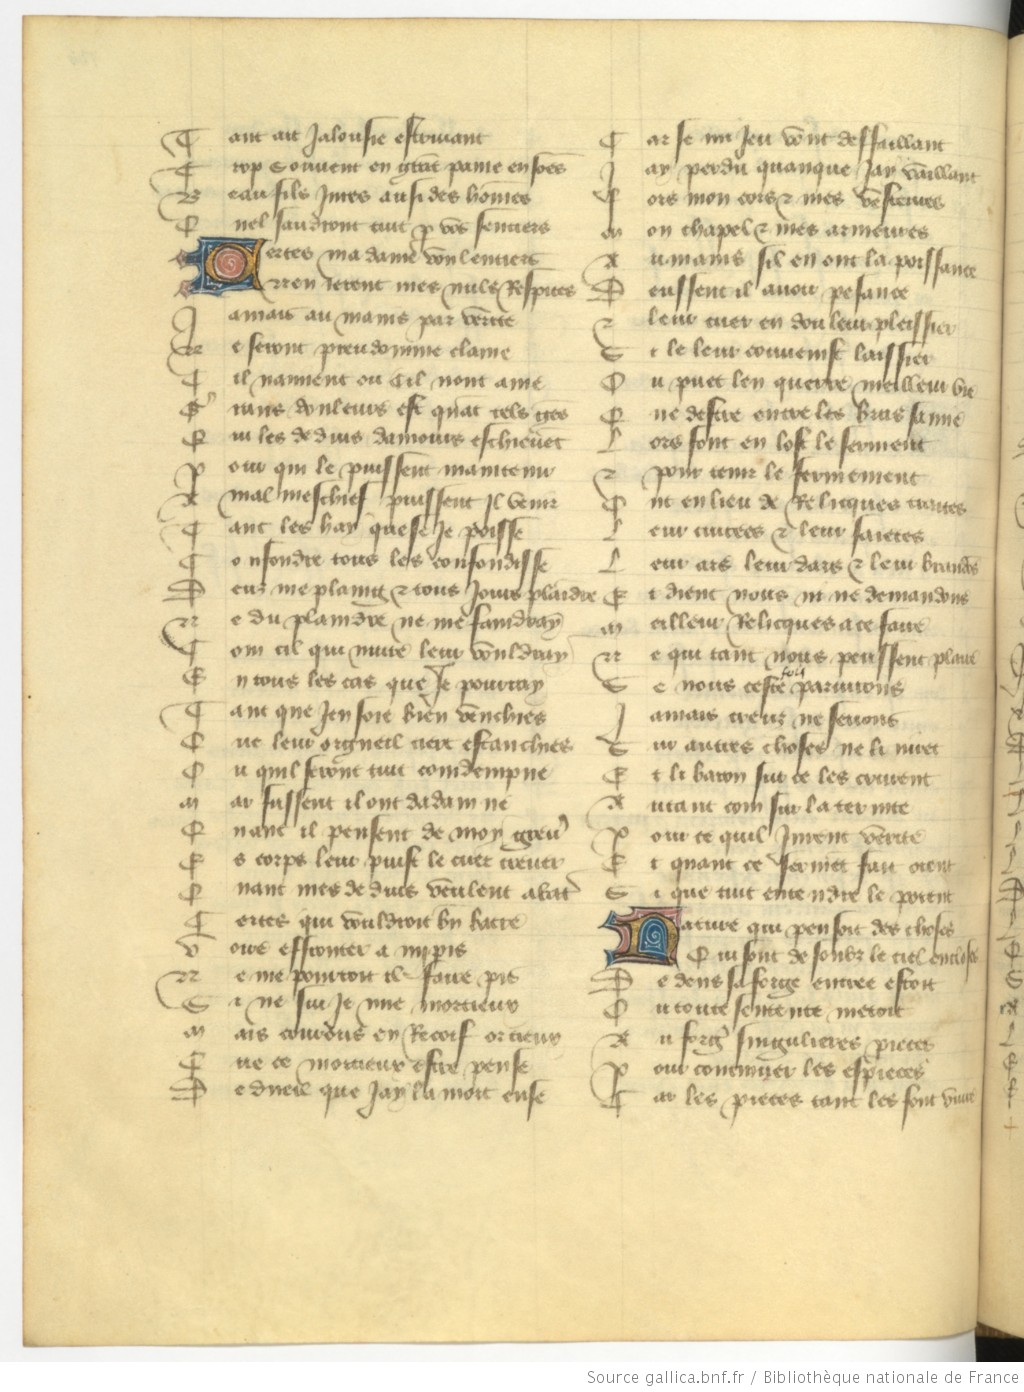 Tant ait Jalousie estriuant
Trop Souuent en grāt paine en sōes
Beau filz Jures ausi des hōmes
Quel saudront tuit p voz sentiers
Certes ma dame voulentiers
Nen seront mes nulz Respitez
Jamais au mains par verite
Ne seront preudomme clame
Cil nament ou Cil nont ame
Grans douleurs est quāt telz gēs
Qui les deduis damours eschieuēt
Pour qui le puissent maintenir
A mal meschief puissent Il venir
Tant les hay que se Je poisse
Confondre tous les confondisse
Deulz me plaing et tous Jours plaindre
Ne du plaindre ne me faindray
Com cil qui nuire leur vouldray
En tous les cas que Je pourray
Tant que Jen soie bien venchies
Que leur orgueil iert estanchies
Ou quil seront tuit condempne
Mar fussent il ont dadam ne
Quant il pensent de moy greu
Es corps leur puist le cuer creuer
Quant mes deduis veulent abat
Certes qui vouldroit by batre
Voire effronter a mi pis
Ne me pourroit il faire pis
Si ne sui Je mie mortieux
Mais courous en Recoif ortieux
Que ce mortieux estre pense
De dueil que Jay la mort eusse
Car se mi Jeu vont deffaillant
Jay perdu quanque Jay vaillant
Fors mon cors et mes vestures
Mon chapel et mes armeures
Au mains sil en ont la poissance
Deussent il auoir pesance
Et leur cuer en douleur plessier
Si le leur conuenist laissier
Ou puet len querre meilleur vie
Que destre entre les bras samie
Lors font en lost le serment
Et pour tenir le fermement
Ont en lieu de Relicques traites
Leur cuirees et leur saietes
Leur ars leur dars et leur brandōs
Et dient nous ni ne demandons
Meilleur Relicques a ce faire
Ne qui tant nous peussent plaire
Se nous ceste foy pariurons
Jamais creuz ne serons
Sur autres choses ne li iuret
Et li baron sur ce les crurent
Autant com sur la ternite
Pour ce quil Jurent verite
Et quant ce serment fait orent
Si que tuit entendre le porent
Nature qui pensoit des choses
Qui sont de soubz le ciel encloses
Dedens sa forge entree estoit
Ou toute sentente metoit
A forg singulieres pieces
Pour continuer les espieces
Car les pieces tant les font viure